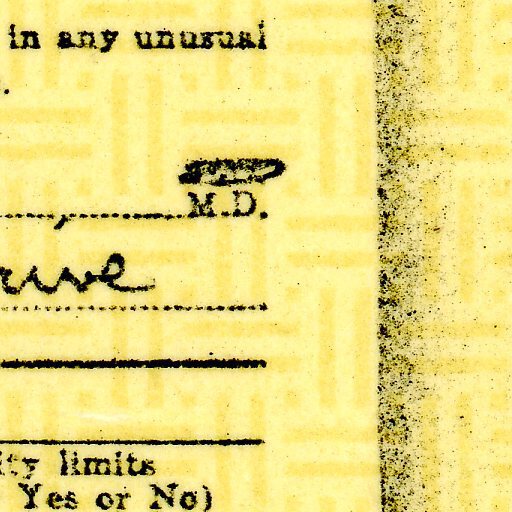 in any unusual
.
M.D.
ity limits
Yes or No)